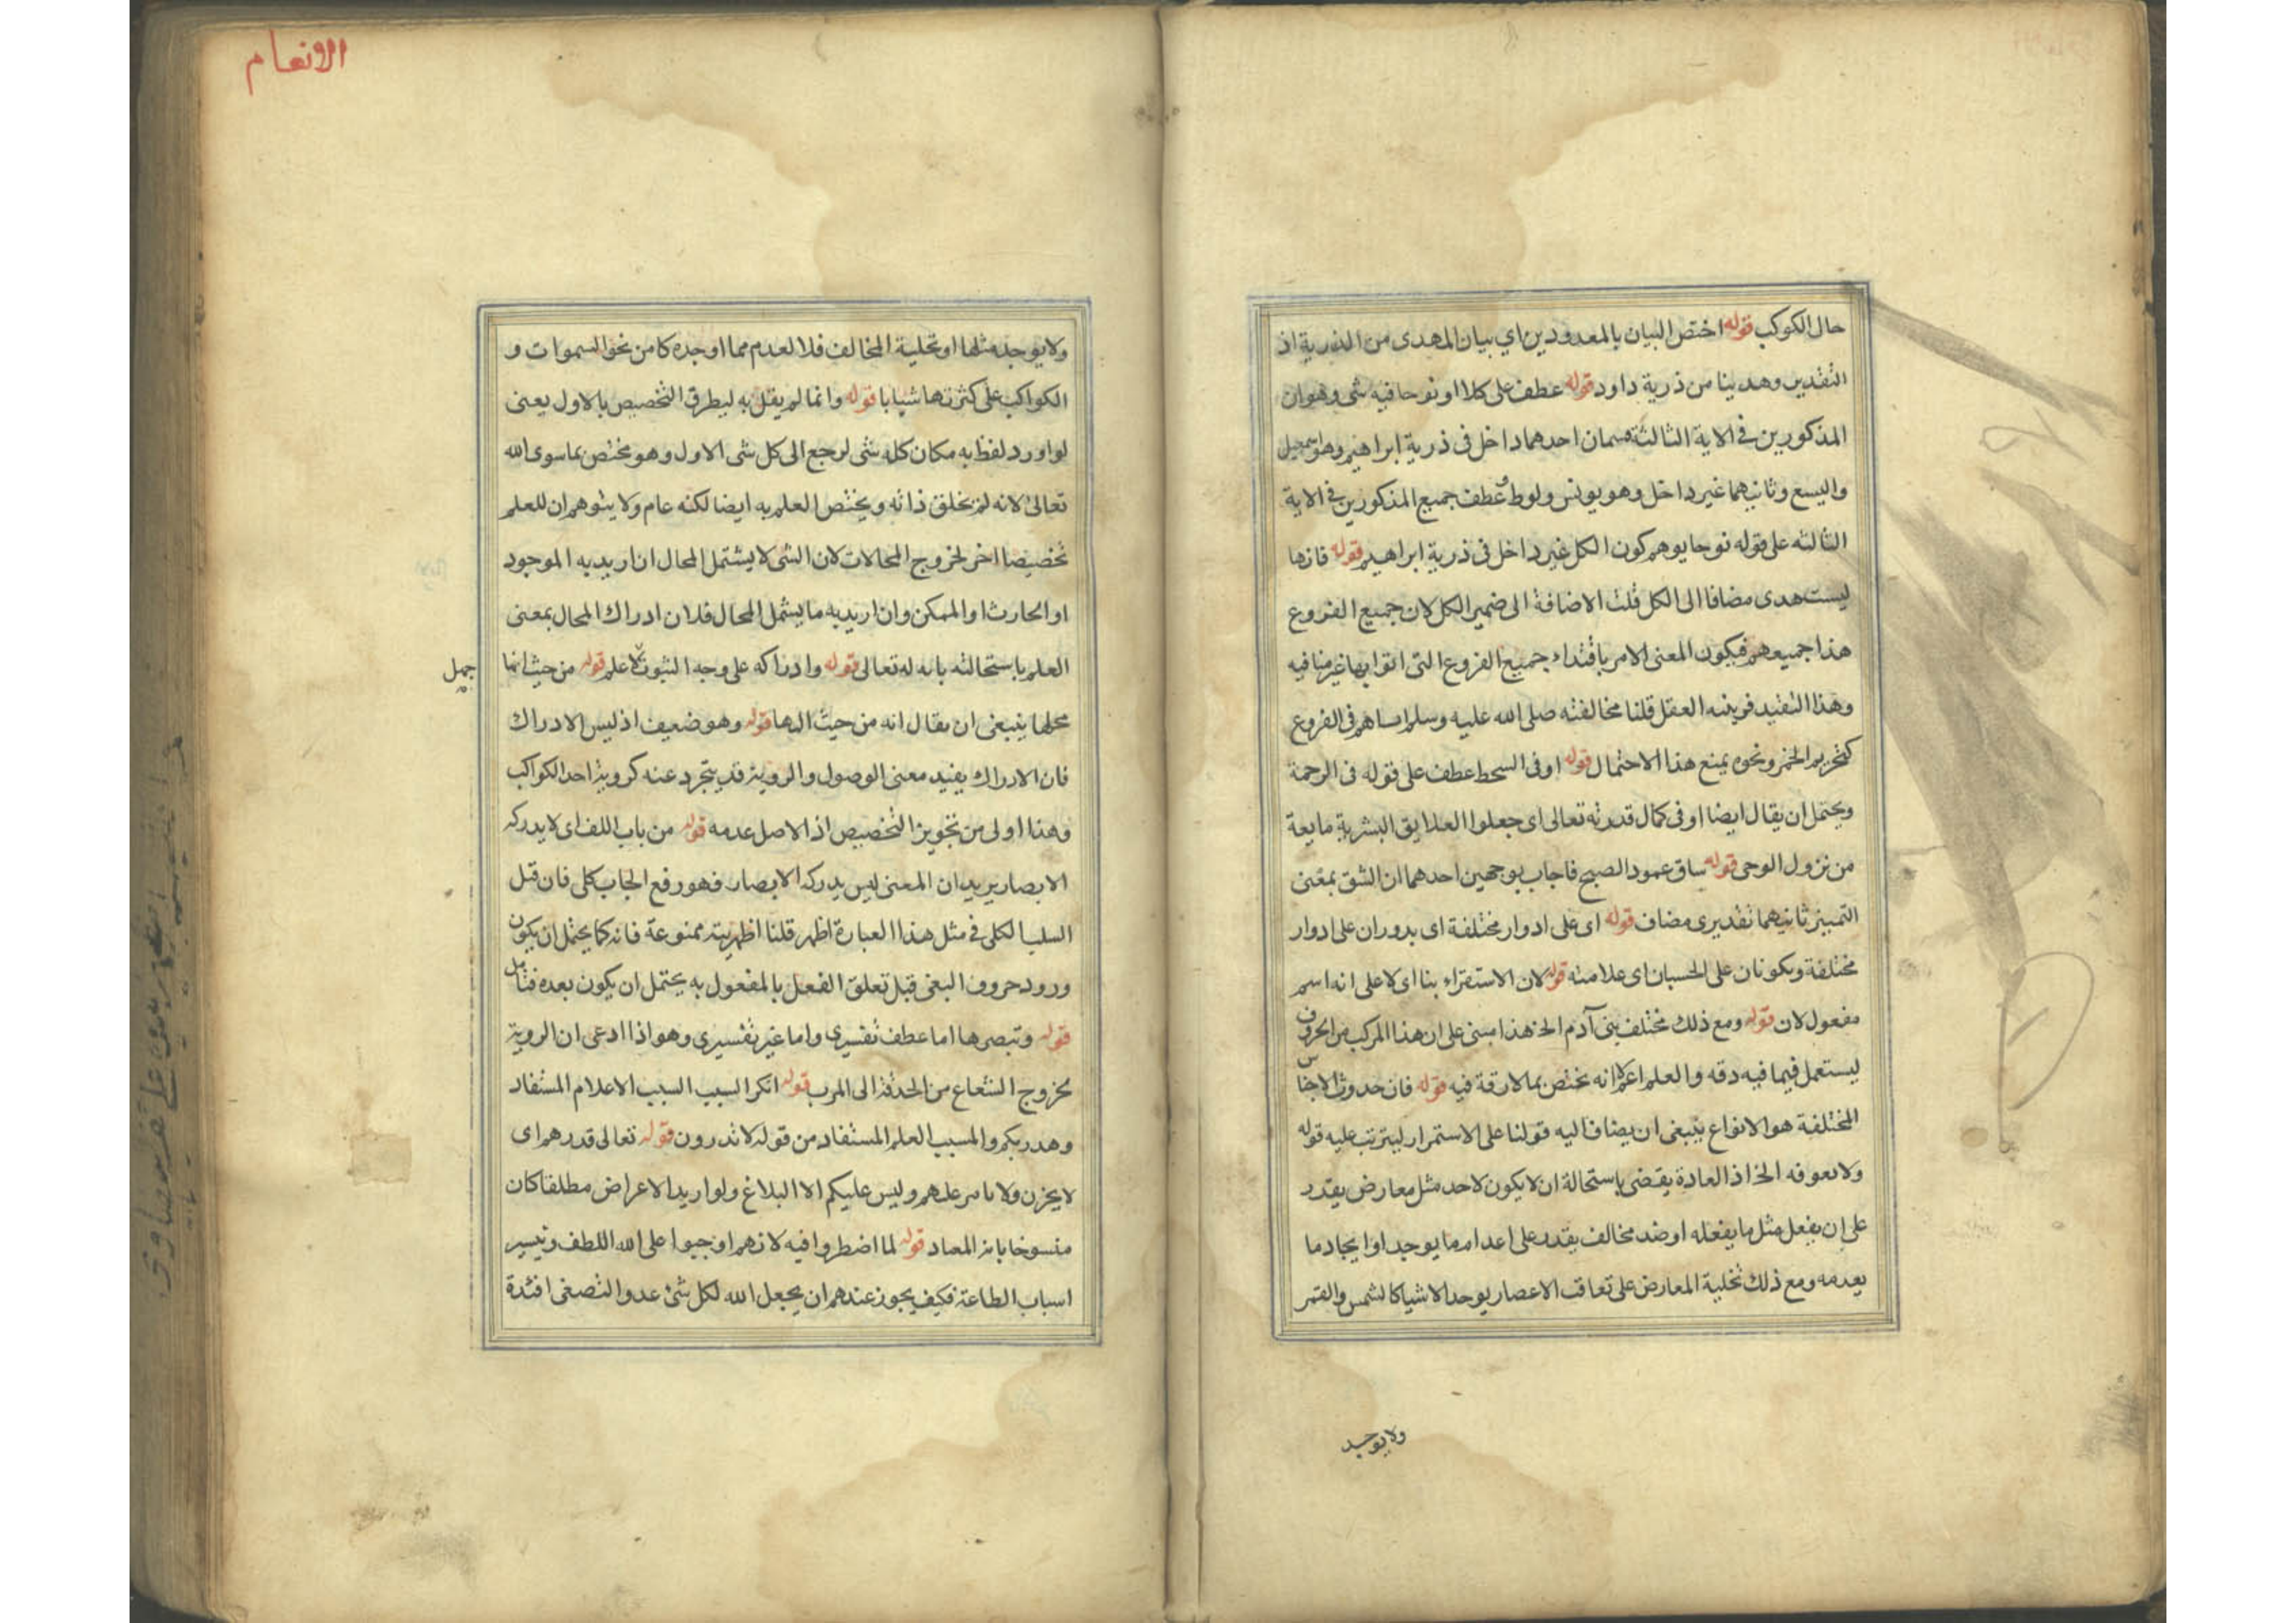 حال الكوكب قوله اختص البيان بالمعدودين اي بيان المهدى من الذرية اذ
التقدير وهدينا من ذرية داود قوله عطف على كلا او نوحا فيه شى وهو ان
المذكورين فى الاية الثالثة قسمان احدهما داخل فى ذرية ابراهيم وهو اسمعيل
واليسع وثانيهما غير داخل وهو يونس ولوط وعطف جميع المذكورين فى الاية
الثالثه على قوله نوحا يوهم كون الكل غير داخل فى ذرية ابراهيم قوله فانها
ليست هدى مضافا الى الكل قلت الاضافة الى ضمير الكل لان جميع الفروع
هذا جميعهم فيكون المعنى الامر باقتداء جميع الفروع التى اتوا بها غير منافيه
وهذا التقييد قرينه العقل قلنا مخالفته صلى الله عليه وسلم اساهم فى الفروع
كتحريم الخمر ونحوه يمنع هذا الاحتمال قوله او فى السحط عطف على قوله فى الرحمة
ويحتمل ان يقال ايضا او فى كمال قدرته تعالى اى جعلوا العلايق البشرية مايعة
من نزول الوحى قوله ساق عمود الصبح فاجاب بوجهين احدهما ان الشق بمعنى
التمييز ثانيهما تقديرى مضاف قوله اى على ادوار مختلفة اى يدوران على ادوار
مختلفة ويكونان على الحسبان اى علامته قوله لان الاستقراء بنا اى لا على انه اسم
مفعول لان قوله ومع ذلك مختلف بنى آدم الخ هذا مبنى على ان هذا المركب من الحروف
ليستعمل فيما فيه دقه والعلم اعم لا انه يختص بما لا رقة فيه قوله فان حدوث الاجناس
المختلفة هو الانواع ينبغى ان يضاف اليه قولنا على الاستمرار ليترتب عليه قوله
ولا يعوقه الخ اذ العادة يقضى باستحالة ان لا يكون لاحد مثل معارض يقدر
على ان يفعل مثل ما يفعله او ضد مخالف يقدر على اعدام ما يوجد او ايجاد ما
يعدمه ومع ذلك تخلية المعارض على تعاقب الاعصار يوجد الاشيا كالشمس والقمر
ولا يوجد
الانعام
ولا يوجد مثلها او تخلية المخالف فلا العدم مما اوجده كا من نحو السموات و
الكواكب على كثرتها شيابا قوله وانما لم يقل به ليطرق التخصيص بالاول يعنى
لو اورد لفظ به مكان كله شى لرجع الى كل شى الاول وهو مختص بما سوى الله
تعالى لانه لم يخلق ذاته ويختص العلم به ايضا لكنه عام ولا يتوهم ان للعلم
تخصيصا اخر لخروج المحالات لان الشى لا يشتمل المحال ان اريد به الموجود
او الحارث او الممكن وان اريد به ما يشمل المحال فلان ادراك المحال بمعنى
العلم باستحالته بانه له تعالى قوله وادراكه على وجه الثبوت لا علم قوله من حيث انما
جمل
محلها ينبغى ان يقال انه من حيث الها قوله وهو ضعيف اذ ليس الادراك
فان الادراك يفيد معنى الوصول والروية قد يتجرد عنه كروية احد الكواكب
وهذا اولى من تجويز التخصيص اذ الاصل عدمه قوله من باب اللف اى لا يدركه
الابصار يريد ان المعنى ليس يدركه الابصار فهو رفع الجاب كلى فان قيل
السلب الكلى فى مثل هذا العبارة اظهر قلنا اظهريته ممنوعة فانه كما يحتمل ان يكون
ورود حروف البغى قبل تعلق الفعل بالمفعول به يحتمل ان يكون بعده فتامل
قوله وتبصرها اما عطف تفسيرى واما غير تفسيرى وهو اذا ادعى ان الروية
بخروج الشعاع من الحدقة الى المرب قوله انكر السبب السبب الاعلام المستفاد
وهدر بكم والمسبب العلم المستفاد من قوله لا تدرون قوله تعالى قدرهم اى
لا يحزن ولا عليهم وليس عليكم الا البلاغ ولو اريد الاعراض مطلقا كان
منسوخا باية المعاد قوله لما اضطروا فيه لانهم اوجبوا على الله اللطف وتيسير
اسباب الطاعة فكيف يجوز عندهم ان يجعل الله لكل شئ عدو التصغى افئدة